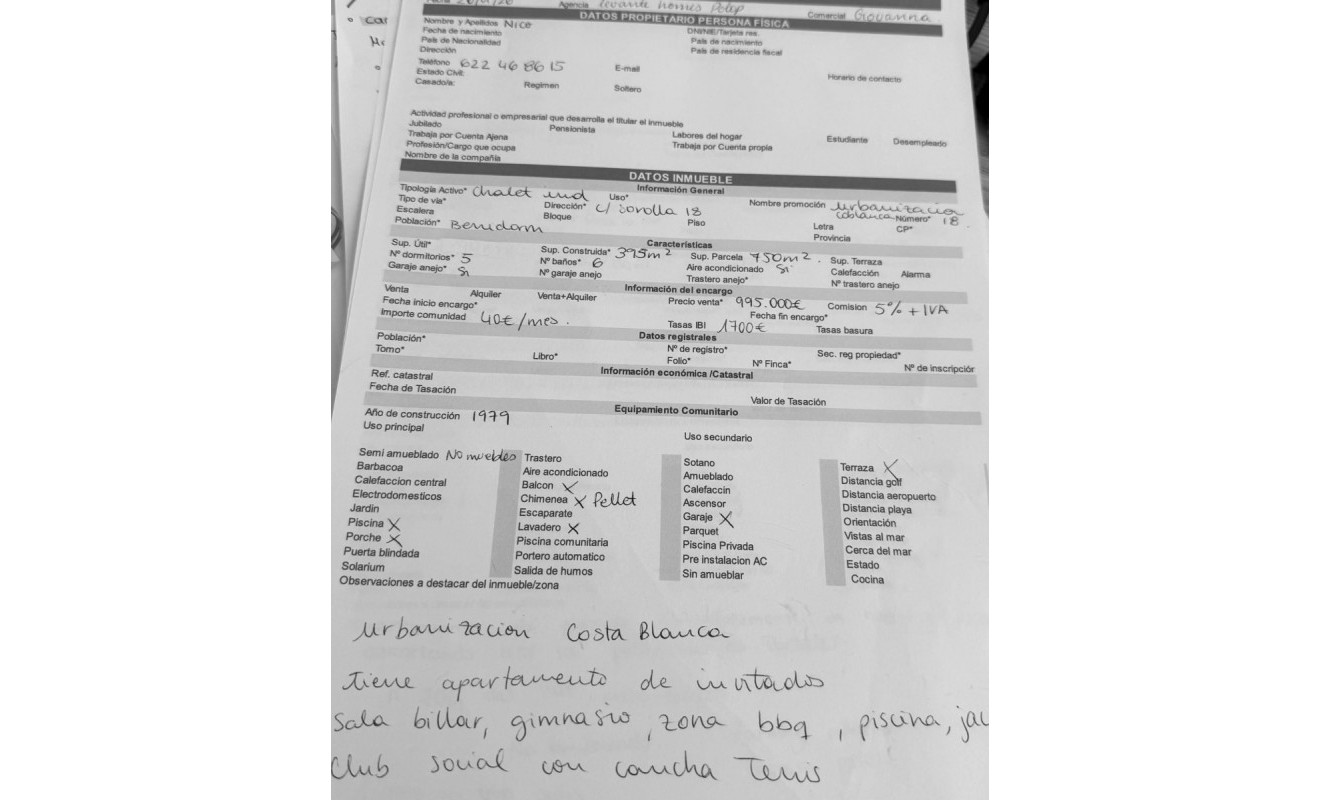 Agencia Levante homes Polop Comercial Giovanna.
DATOS PROPIETARIO PERSONA FÍSICA
Nombre y Apellidos Nice DNI/NIE/Tarjeta res.
Fecha de nacimiento País de nacimiento
País de Nacionalidad País de residencia fiscal
Dirección
Teléfono 622 46 86 15 E-mail Horario de contacto
Estado Civil:
Casado/a: Regimen Soltero
Actividad profesional o empresarial que desarrolla el titular el inmueble
Jubilado Pensionista Labores del hogar Estudiante Desempleado
Trabaja por Cuenta Ajena Trabaja por Cuenta propia
Profesión/Cargo que ocupa
Nombre de la compañía
DATOS INMUEBLE
Información General
Tipología Activo* Chalet ind Uso* Nombre promoción urbanizacion
Tipo de vía* Dirección* c/ sorolla 18 Cblanca Número* 18
Escalera Bloque Piso Letra CP*
Población* Benidorm Provincia
Características
Sup. Útil* Sup. Construida* 395m² Sup. Parcela 750m². Sup. Terraza
Nº dormitorios* 5 Nº baños* 6 Aire acondicionado Si Calefacción Alarma
Garaje anejo* Si Nº garaje anejo Trastero anejo* Nº trastero anejo
Información del encargo
Venta Alquiler Venta+Alquiler Precio venta* 995.000€ Comision 5% + IVA
Fecha inicio encargo* Fecha fin encargo*
Importe comunidad 40€/mes. Tasas IBI 1700€ Tasas basura
Datos registrales
Población* Nº de registro* Sec. reg propiedad*
Tomo* Libro* Folio* Nº Finca* Nº de inscripción
Información económica /Catastral
Ref. catastral
Fecha de Tasación Valor de Tasación
Equipamiento Comunitario
Año de construcción 1979
Uso principal Uso secundario
Semi amueblado No muebles Trastero Sotano Terraza X
Barbacoa Aire acondicionado Amueblado Distancia golf
Calefaccion central Balcon X Calefaccin Distancia aeropuerto
Electrodomesticos Chimenea X Pellet Ascensor Distancia playa
Jardin Escaparate Garaje X Orientación
Piscina X Lavadero X Parquet Vistas al mar
Porche X Piscina comunitaria Piscina Privada Cerca del mar
Puerta blindada Portero automatico Pre instalacion AC Estado
Solarium Salida de humos Sin amueblar Cocina
Observaciones a destacar del inmueble/zona
urbanizacion Costa Blanca
tiene apartamento de invitados
sala billar, gimnasio, zona bbq, piscina, jac
Club social con cancha Tenis